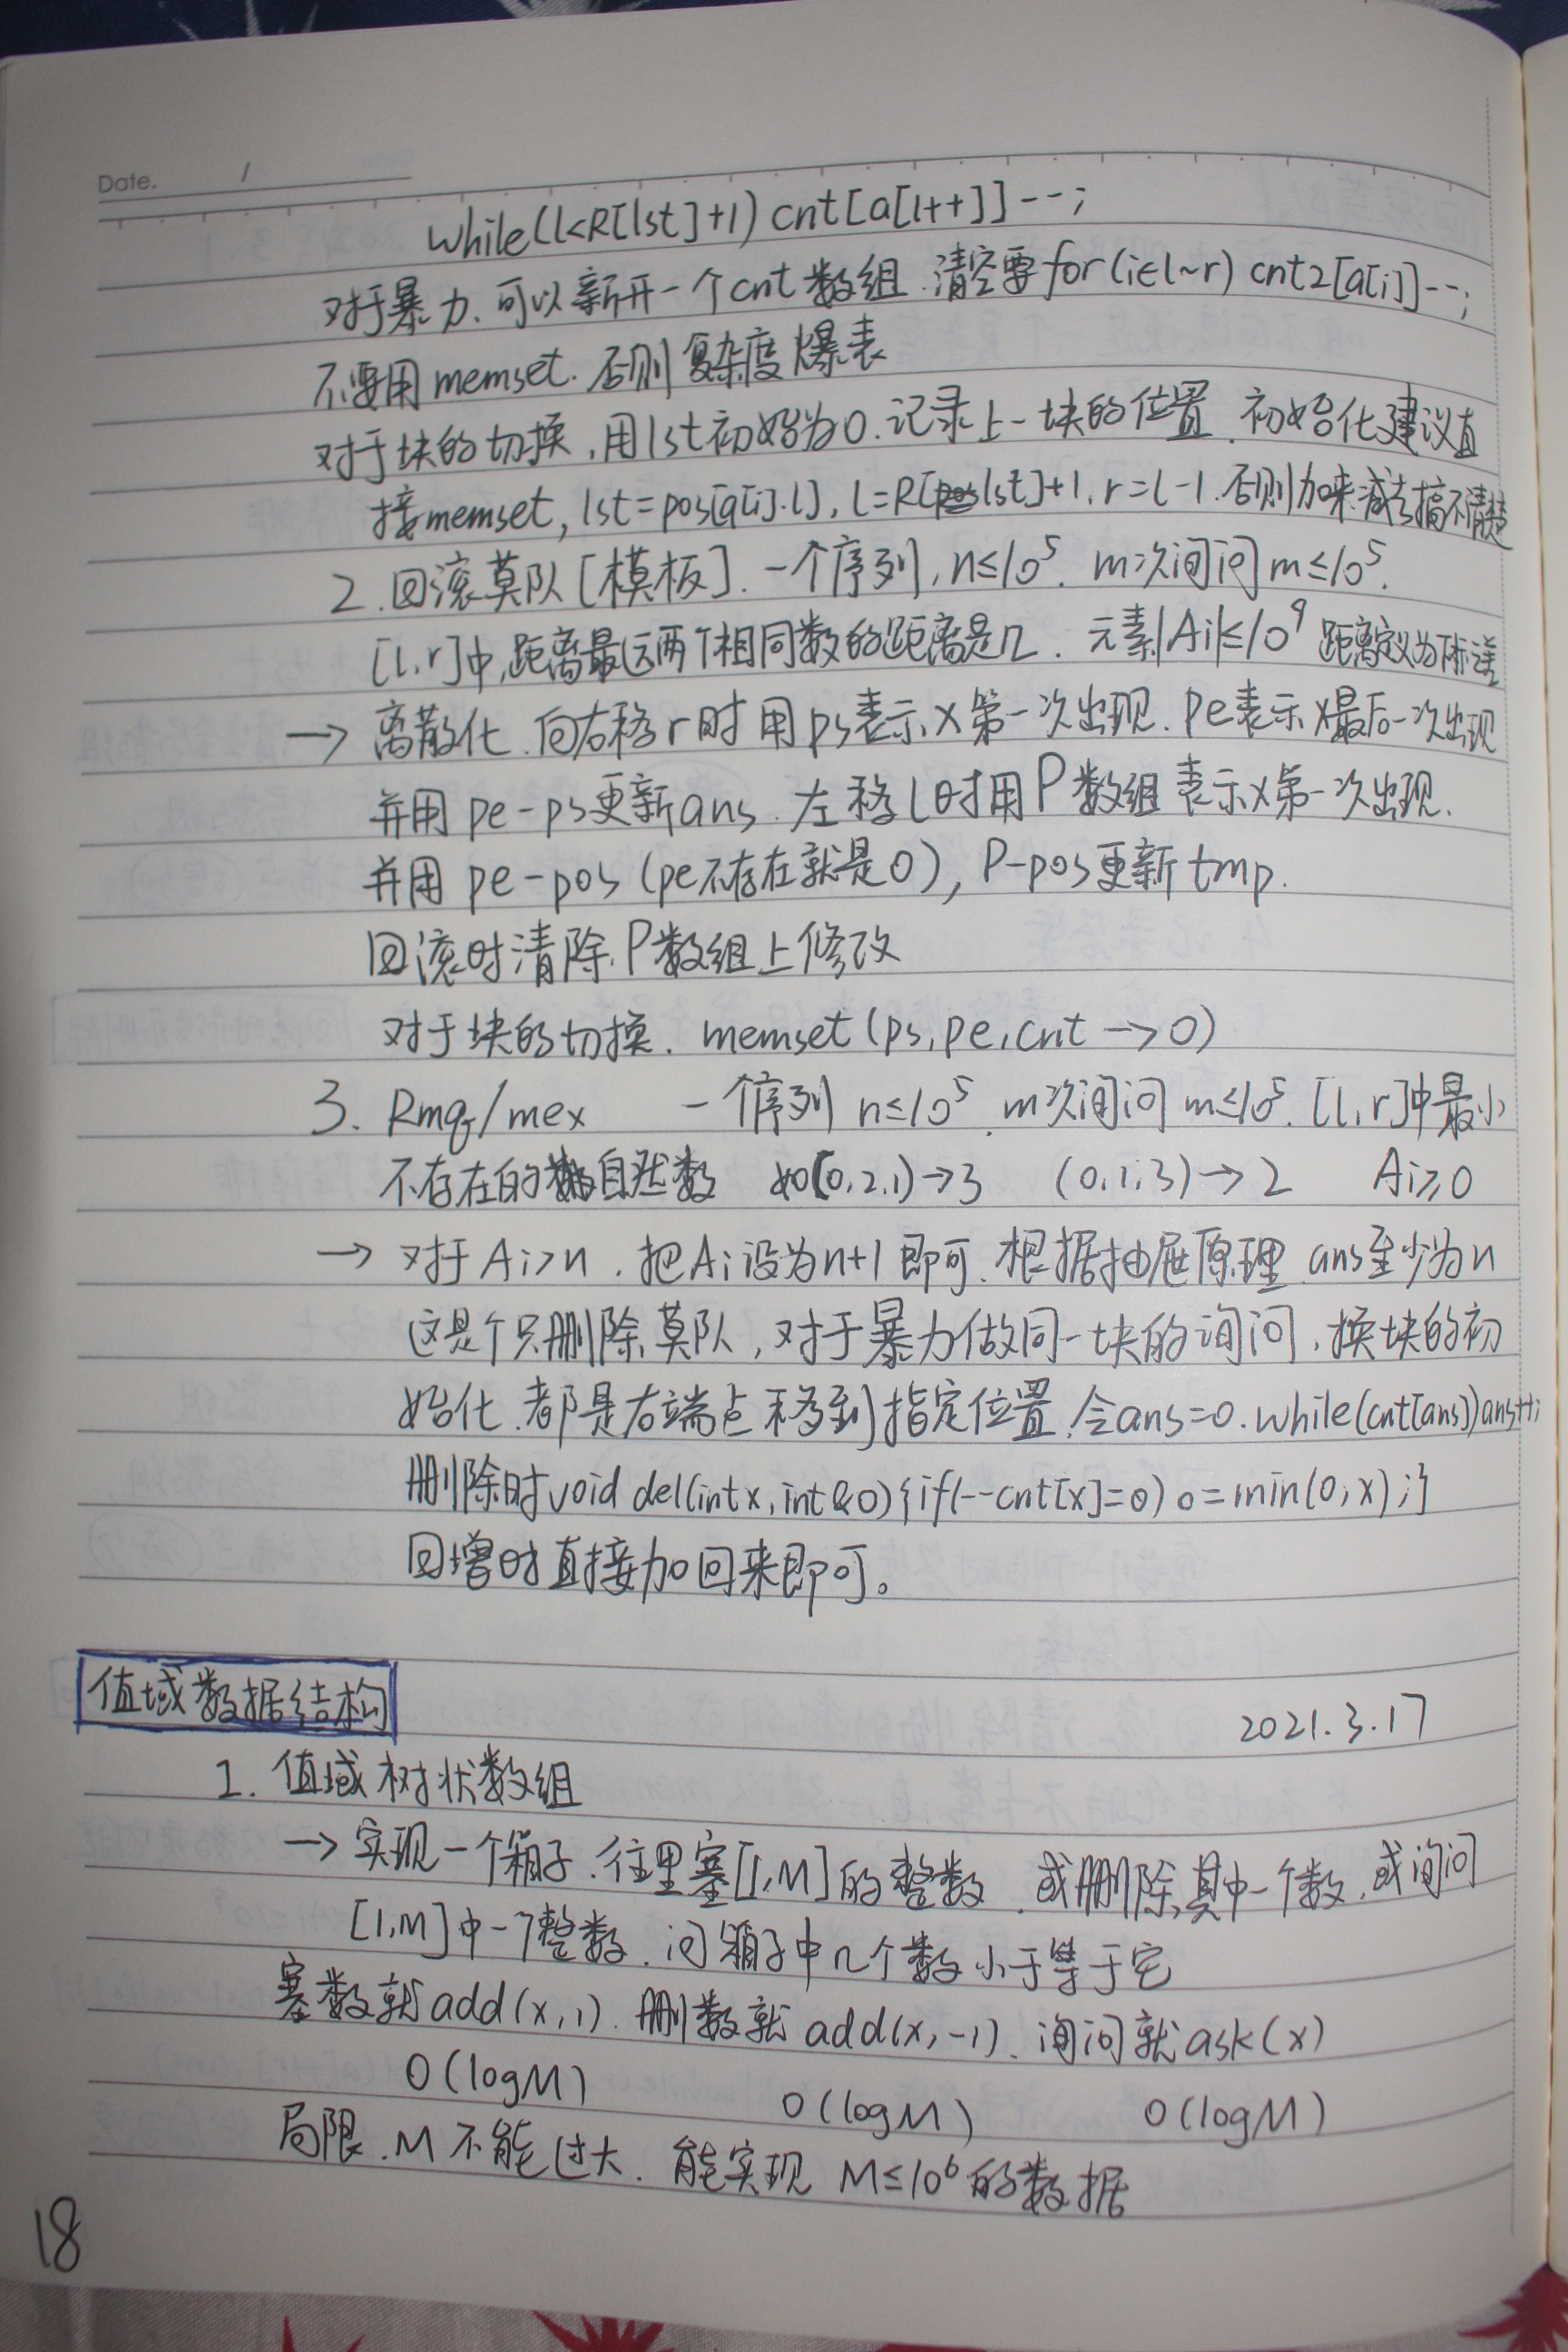 Date. /
while(l<R[lst]+1) cnt[a[l++]]--;
对于暴力、可以新开一个cnt数组.清空要for(i∈l~r) cnt2[a[i]]--;
不要用memset.否则复杂度爆表
对于块的切换,用lst初始为0.记录上一块的位置.初始化建议直
接memset, lst=pos[q[i].l], l=R[lst]+1, r=l-1.否则加来减去搞不清楚
2.回滚莫队[模板].一个序列,n≤10^5. m次询问m≤10^5.
[l,r]中,距离最远两个相同数的距离是几. 元素|Ai|≤10^9 距离定义为下标差
→ 离散化.向右移r时用ps表示x第一次出现.pe表示x最后一次出现
并用pe-ps更新ans.左移l时用P数组表示x第一次出现.
并用pe-pos(pe不存在就是0), P-pos更新tmp.
回滚时清除P数组上修改
对于块的切换. memset(ps,pe,cnt→0)
3. Rmq/mex 一个序列 n≤10^5. m次询问 m≤10^5. [l,r]中最小
不存在的自然数 如(0,2,1)→3 (0,1,3)→2 Ai≥0
→ 对于Ai>n.把Ai设为n+1即可.根据抽屉原理 ans至少为n
这是个只删除莫队,对于暴力做同一块的询问,换块的初
始化.都是右端点移到指定位置.令ans=0.while(cnt[ans])ans++;
删除时void del(int x,int &o){if(--cnt[x]=0) o=min(o,x);}
回增时直接加回来即可。
值域数据结构
2021.3.17
1.值域树状数组
→ 实现一个箱子.往里塞[1,M]的整数.或删除其中一个数.或询问
[1,M]中一个整数.问箱子中几个数小于等于它
塞数就add(x,1).删数就add(x,-1).询问就ask(x)
O(logM) O(logM) O(logM)
局限.M不能过大.能实现 M≤10^6的数据
18